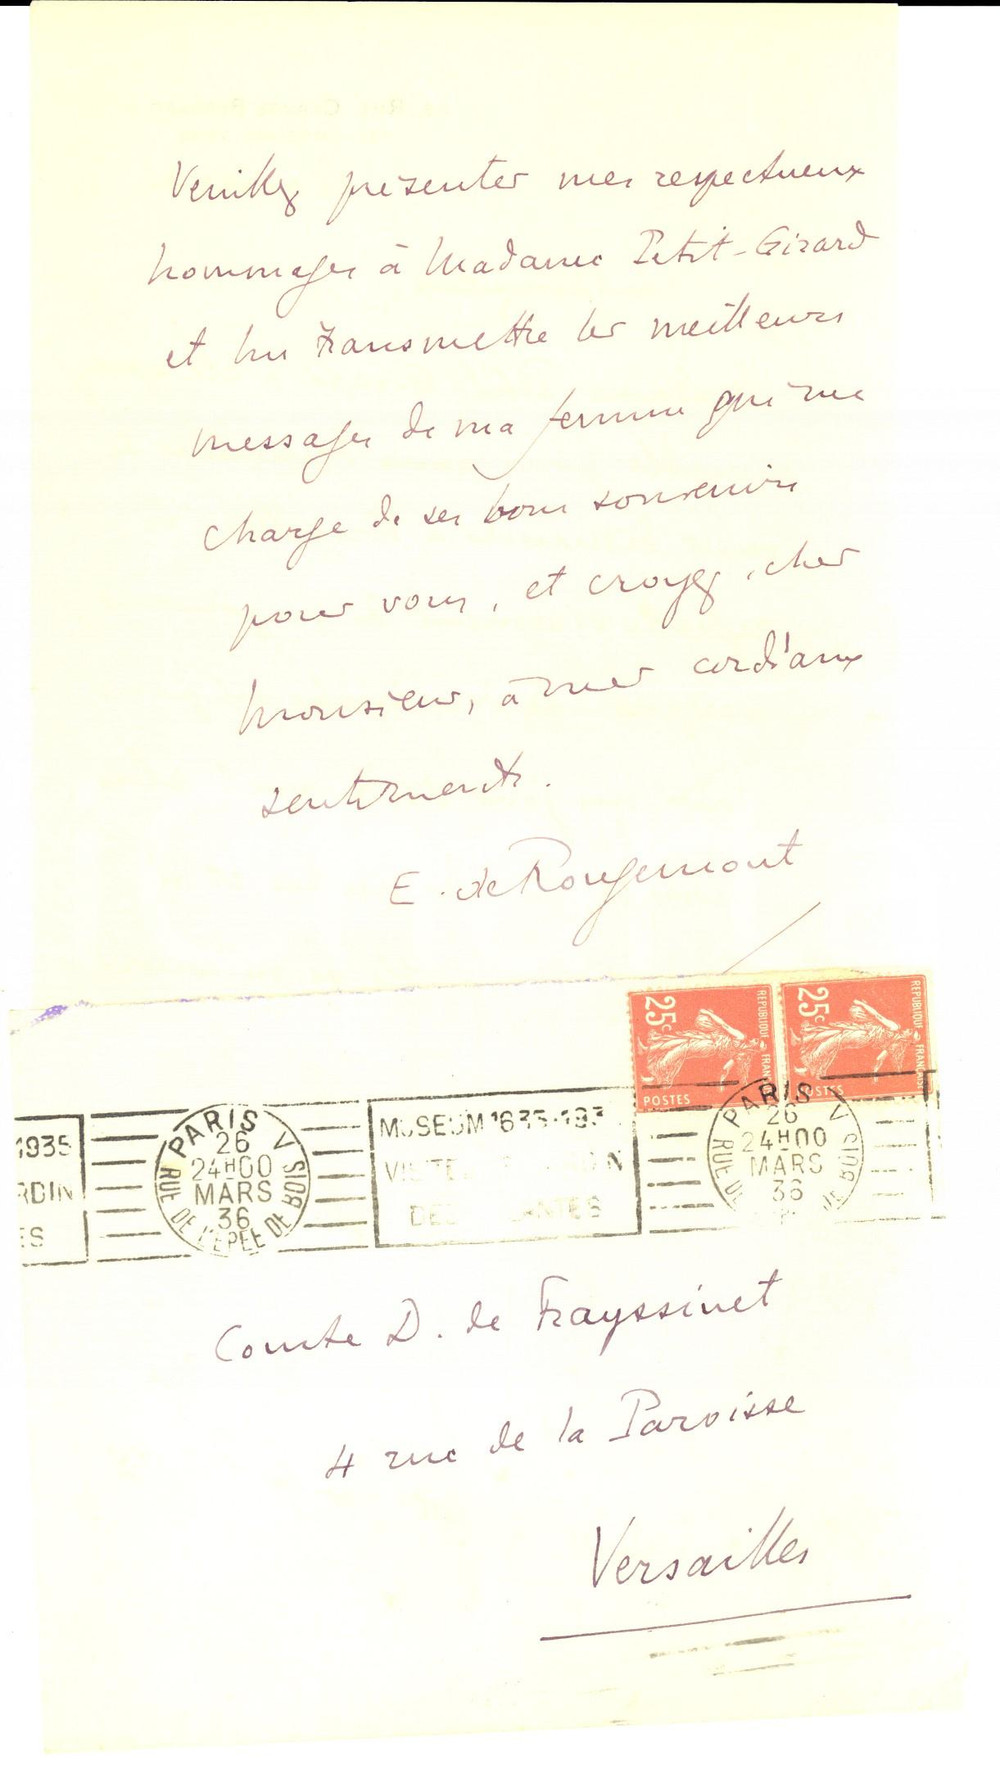 Veuillez présenter mes respectueux
hommages à Madame Petit-Girard
et lui transmettre les meilleurs
messages de ma femme qui me
charge de ses bons souvenirs
pour vous, et croyez, cher
Monsieur, à mes cordiaux
sentiments.
E. de Rougemont
25c REPUBLIQUE FRANÇAISE POSTES
25c REPUBLIQUE FRANÇAISE POSTES
1935
RDIN
ES
PARIS V
26
24H00
MARS
36
RUE DE L'EPEE DE BOIS
MUSEUM 1635-193
VISITE DIN
DES ANTES
PARIS V
26
24H00
MARS
36
RUE DE BOIS
Comte D. de Frayssinet
4 rue de la Paroisse
Versailles